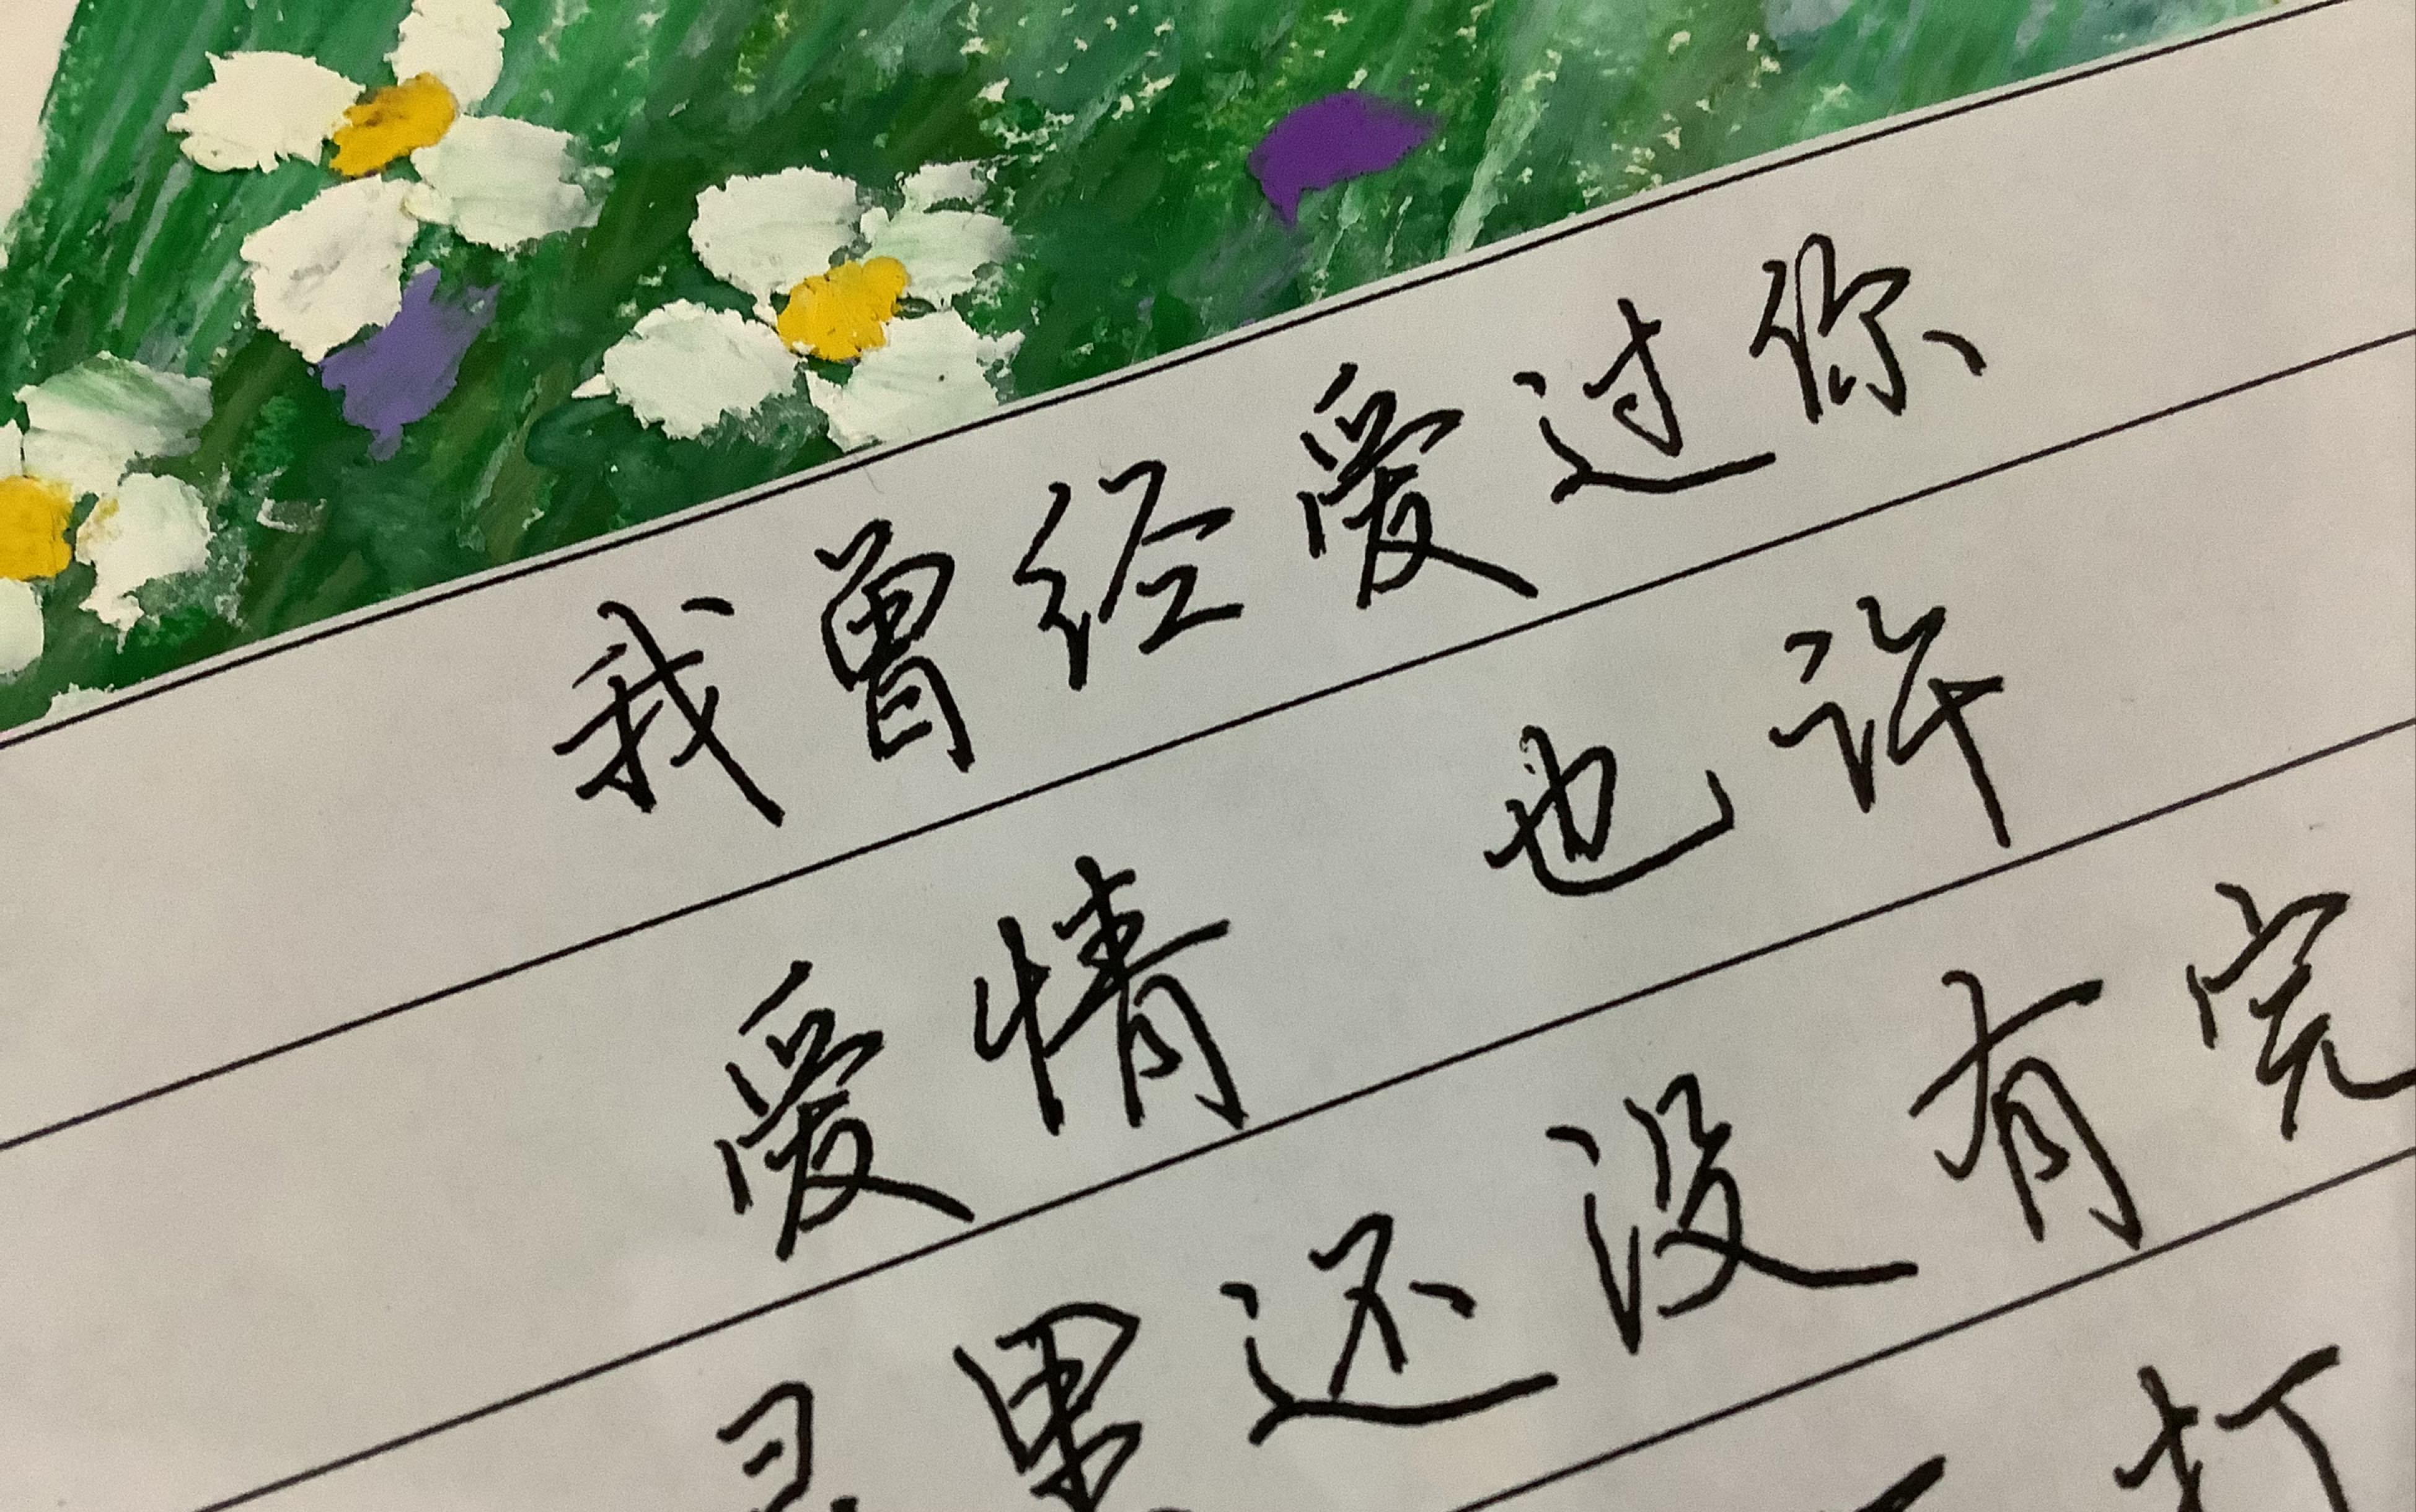 我曾经爱过你
爱情 也许
灵里还没有完
打